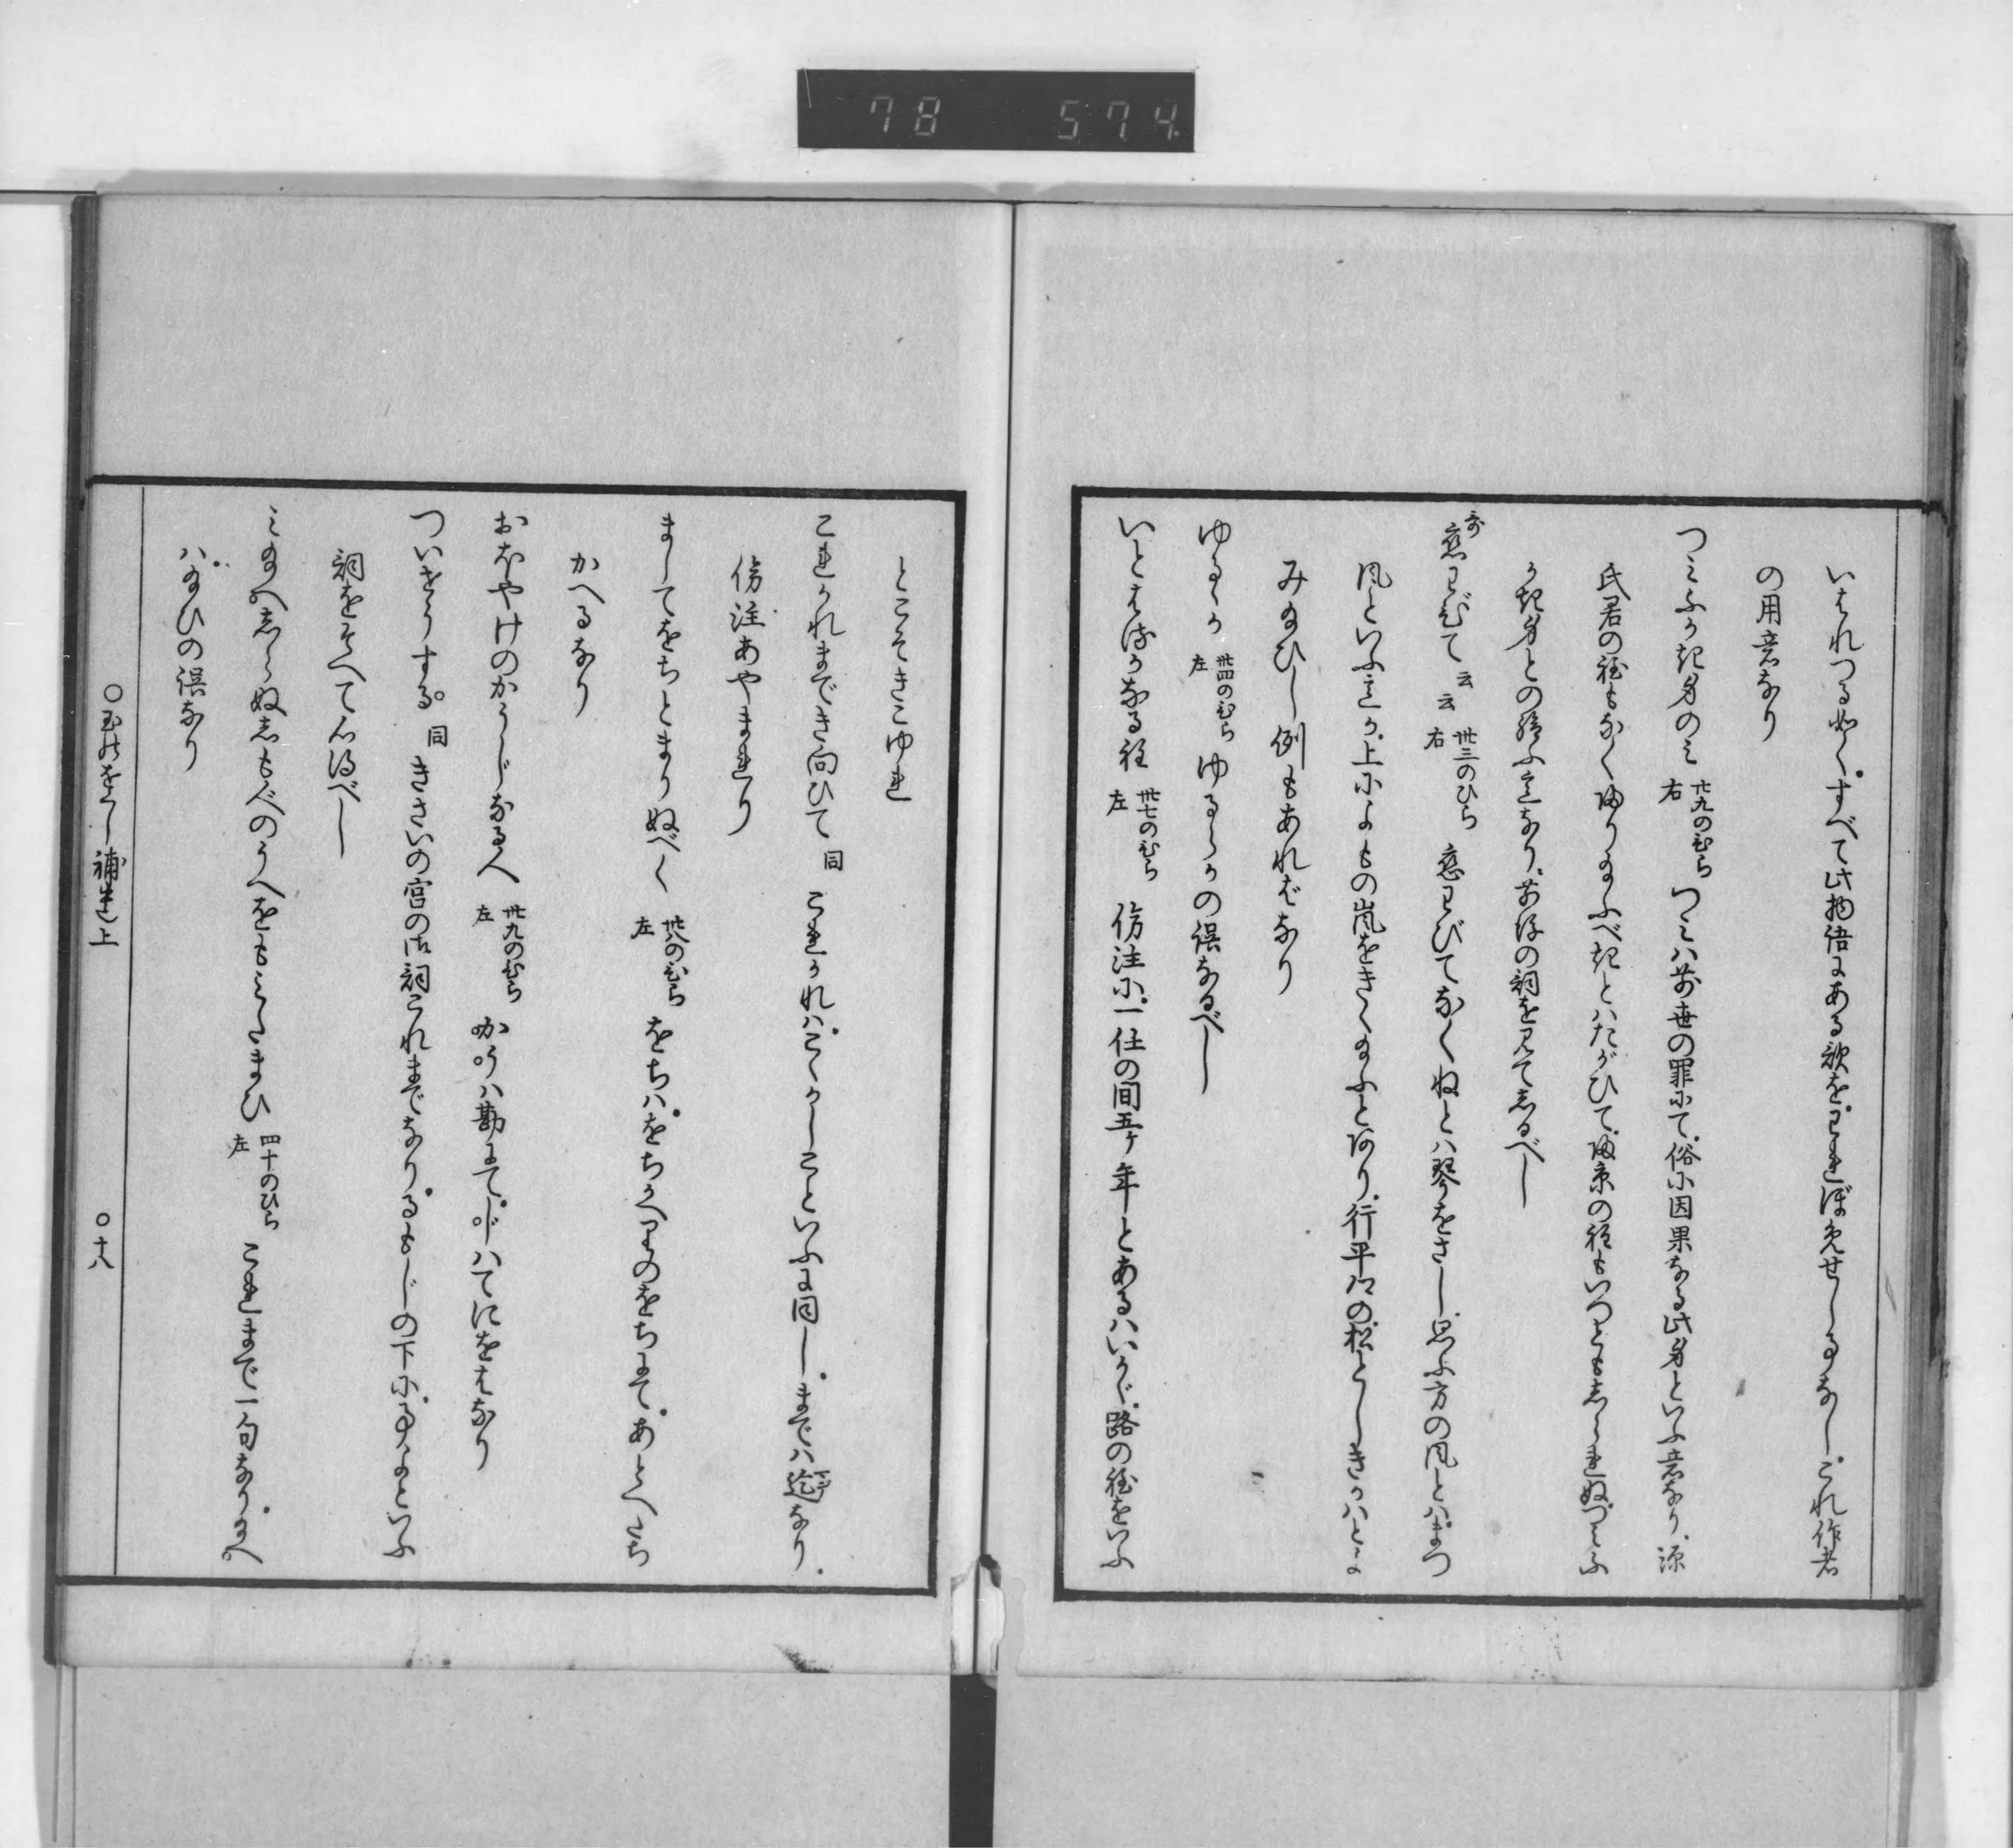 78 574
いはれつる如く。すべて此物語にある歌を。われぼめせし事なし。これ作者
の用意なり
つみふかき身のミ 廿九のひら右 つミハ前世の罪にて。俗に因果なる此身といふ意なり。源
氏君の程もなく帰り給ふべきとハたがひて。帰京の程もいつとも志られぬつみふ
かき身との給ふ意なり。前後の詞を見て志るべし
哥 恋わびて云云 卅三のひら右 恋わびてなくねとハ琴をさし。思ふ方の風とハ。まつ
風といふ意か。上によもの嵐をきゝ給ふとあり。行平卿の。松としきかハとよ
み給ひし例もあれバなり
ゆるゝか 卅四のひら左 ゆるらかの誤なるべし
いとはるかなる程 卅七のひら左 傍注に。一任の間五ケ年とあるハいかゞ。路の程をいふ
とこそきこゆれ
これかれまでき向ひて 同 これかれハ。こゝかしこといふに同し。までハ迄なり。
傍注。あやまれり
ましてをちとまりぬべく 卅八のひら左 をちハ。をちかへりのをちにて。あとへたち
かへるなり
おほやけのかうじなる人 卅九のひら左 かうハ勘にて。じハてにをはなり
ついせうする。 同 きさいの宮の御詞これまでなり。るもじの下に。事よといふ
詞をそへて心得べし
ミ給へ志らぬ志もべのうへをもミたまひ 四十のひら左 これまで一句なり。給へ
ハ。給ひの誤なり
○玉のをくし補遺上 ○十八